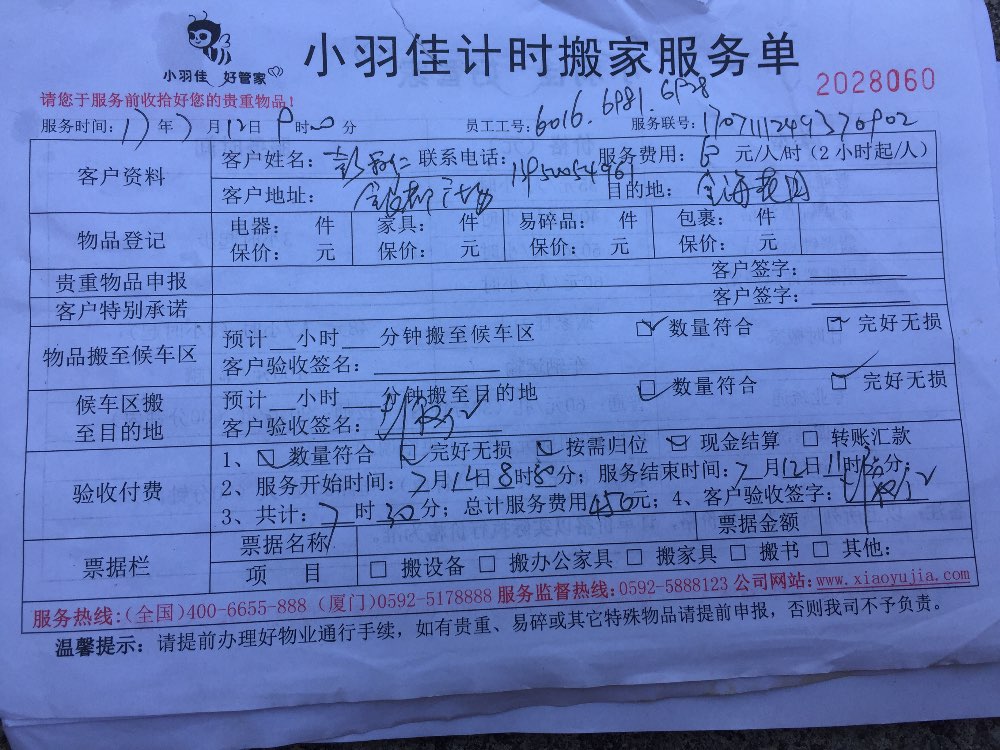 小羽佳 好管家
小羽佳计时搬家服务单
2028060
请您于服务前收拾好您的贵重物品!
服务时间: 17年7月12日 时 分 员工工号: 6016. 6981. 6928 服务联号: 1707111249370902
客户资料 客户姓名: 联系电话: 服务费用: 60 元/人/时 (2小时起/人)
客户地址: 目的地: 海花园
物品登记 电器: 件 家具: 件 易碎品: 件 包裹: 件
保价: 元 保价: 元 保价: 元 保价: 元
贵重物品申报 客户签字:
客户特别承诺 客户签字:
物品搬至候车区 预计 小时 分钟搬至候车区 数量符合 完好无损
客户验收签名:
候车区搬至目的地 预计 小时 分钟搬至目的地 数量符合 完好无损
客户验收签名:
验收付费 1、 数量符合 完好无损 按需归位 现金结算 转账汇款
2、服务开始时间: 7月14日8时30分; 服务结束时间: 7月12日11时 分;
3、共计: 7时30分; 总计服务费用450元; 4、客户验收签字:
票据栏 票据名称 票据金额
项 目 搬设备 搬办公家具 搬家具 搬书 其他:
服务热线:(全国)400-6655-888 (厦门)0592-5178888 服务监督热线:0592-5888123 公司网站:www.xiaoyujia.com
温馨提示: 请提前办理好物业通行手续, 如有贵重、易碎或其它特殊物品请提前申报, 否则我司不予负责。